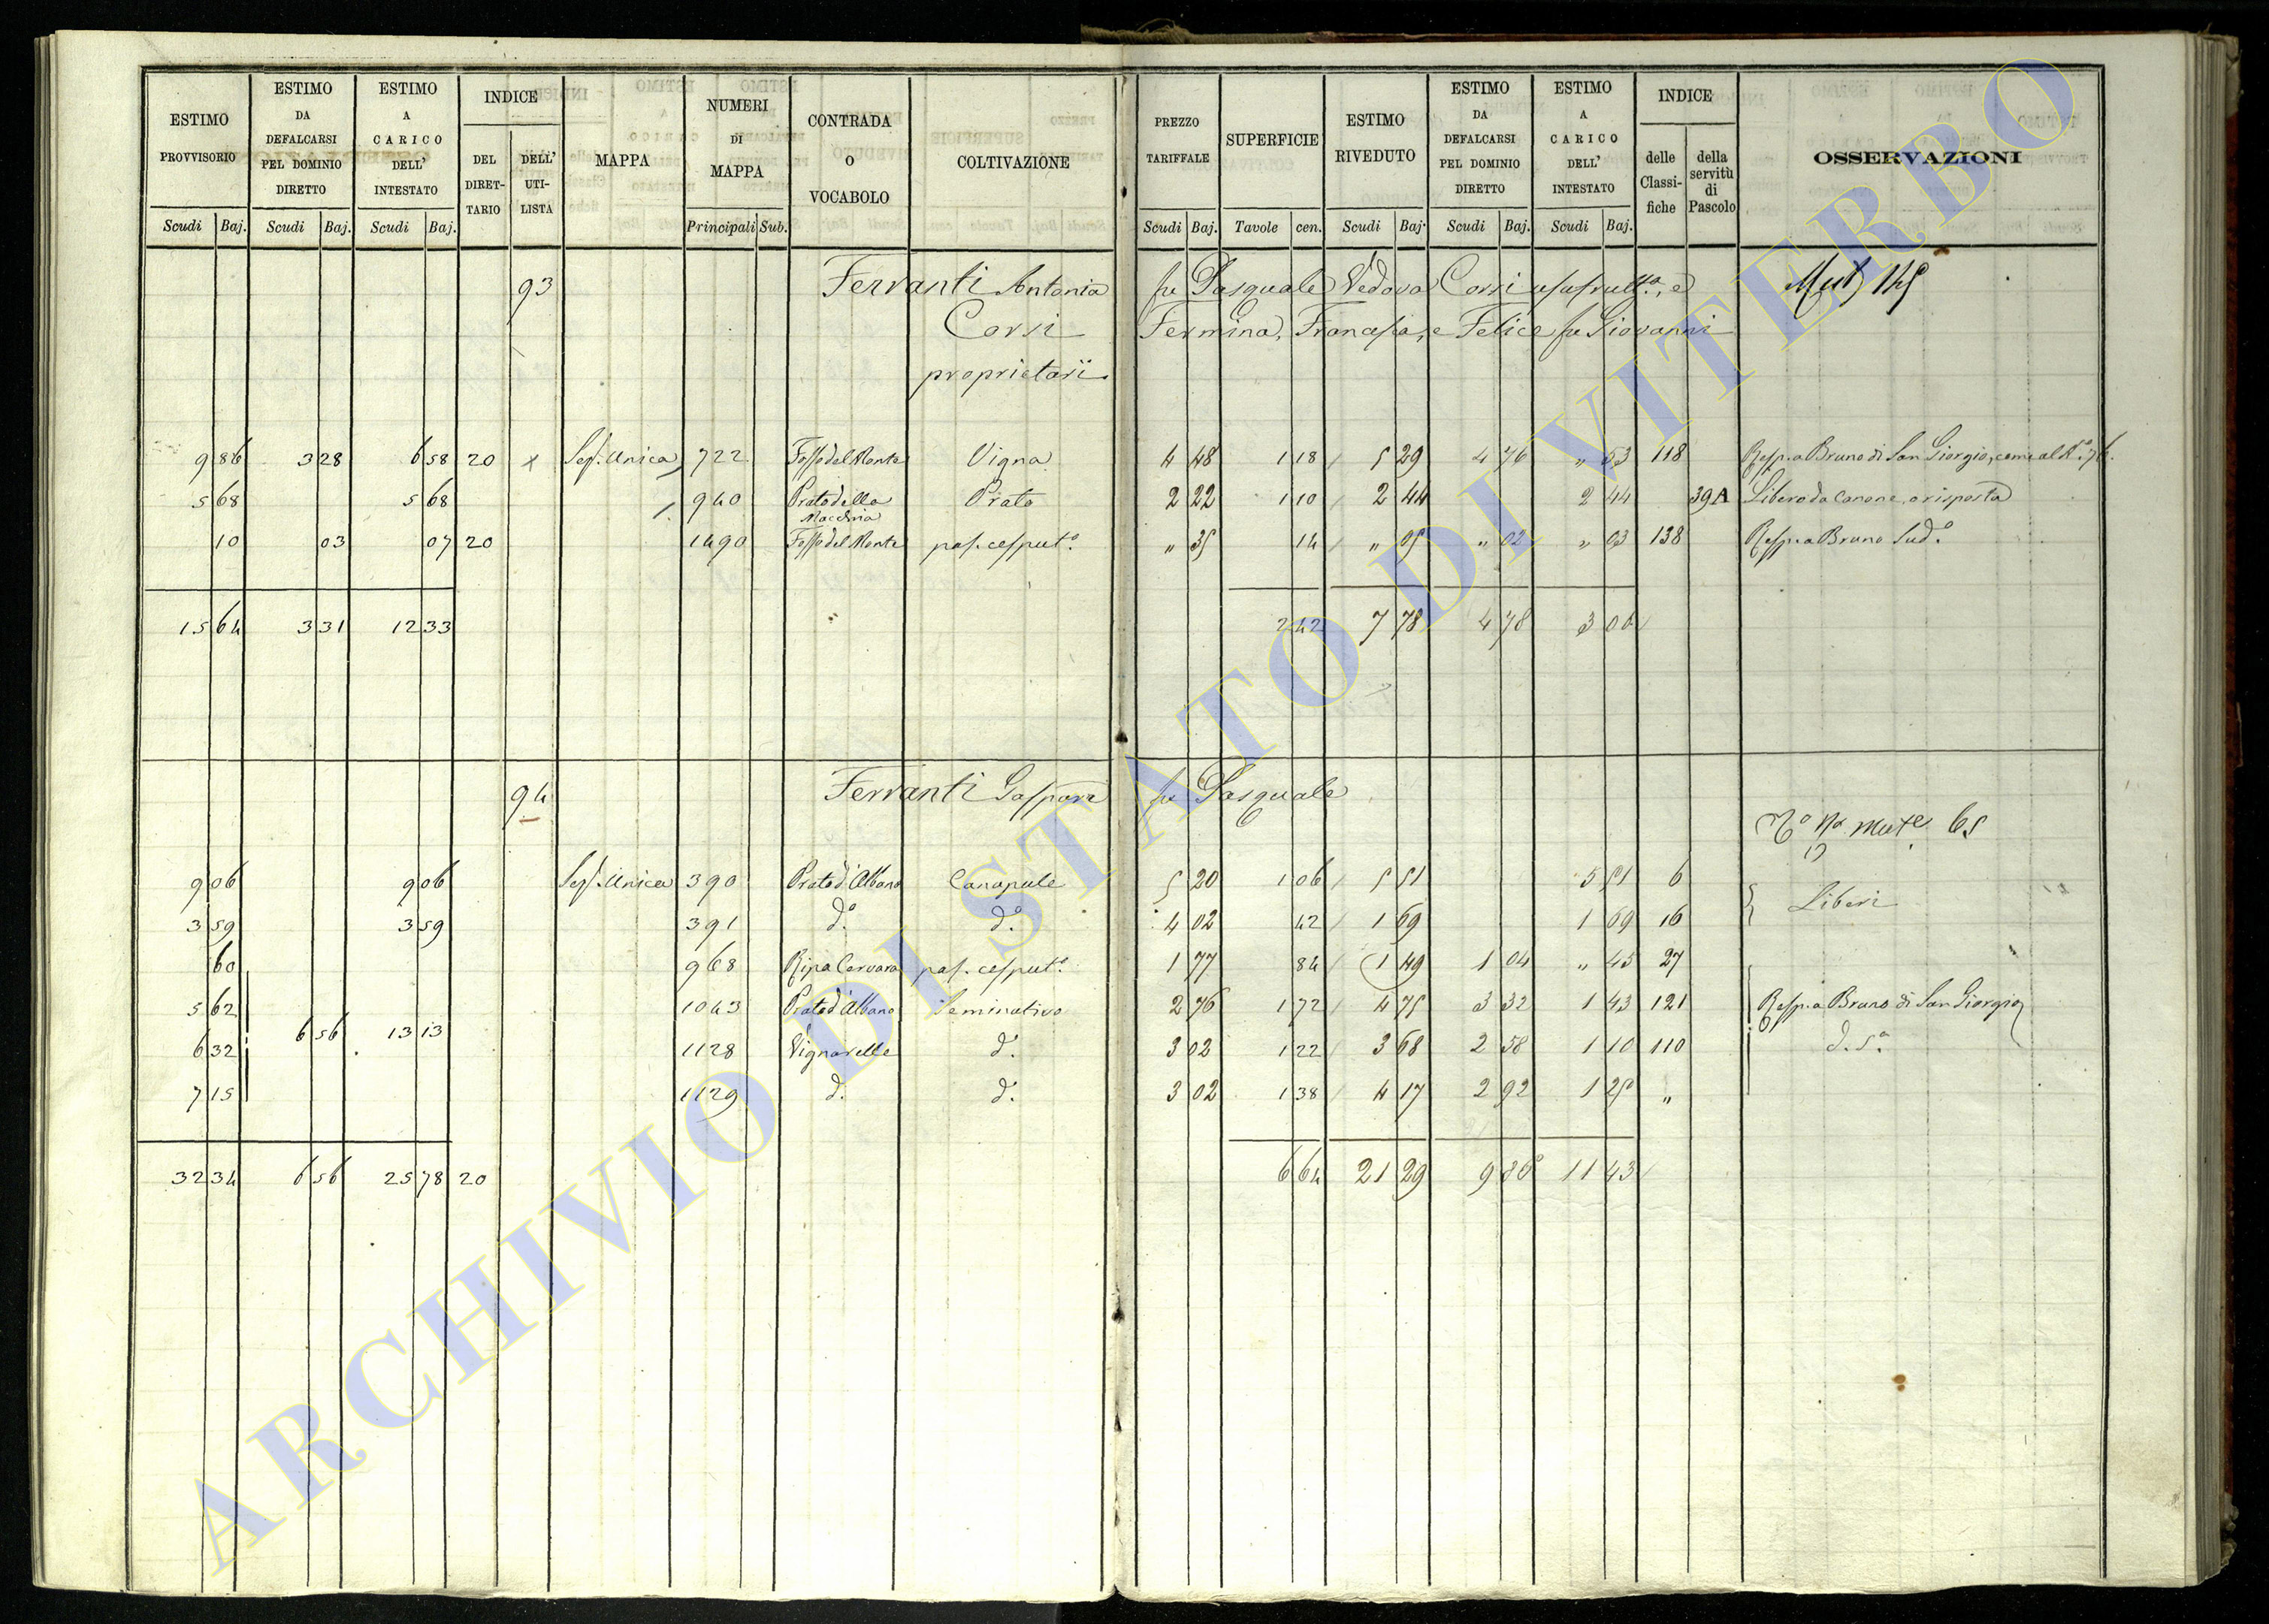 ESTIMO PROVVISORIO Scudi Baj. | ESTIMO DA DEFALCARSI PEL DOMINIO DIRETTO Scudi Baj. | ESTIMO A CARICO DELL' INTESTATO Scudi Baj. | INDICE DEL DIRET- TARIO | DELL' UTI- LISTA | MAPPA | NUMERI DI MAPPA Principali Sub. | CONTRADA O VOCABOLO | COLTIVAZIONE | PREZZO TARIFFALE Scudi Baj. | SUPERFICIE Tavole cen. | ESTIMO RIVEDUTO Scudi Baj. | ESTIMO DA DEFALCARSI PEL DOMINIO DIRETTO Scudi Baj. | ESTIMO A CARICO DELL' INTESTATO Scudi Baj. | INDICE delle Classi- fiche | della servitù di Pascolo | OSSERVAZIONI
93 Ferranti Antonia fu Pasquale Vedova Corsi usufrutt.a, e
Corsi Fermina, Francesca, e Felice fu Giovanni
proprietarii
9 86 | 3 28 | 6 58 | 20 | x | Sez. Unica | 722 | Fosso del Monte | Vigna | 4 48 | 1 18 | 5 29 | 4 76 | „ 53 | 118 | Resp. a Bruno di San Giorgio, come al N.o 76.
5 68 | 5 68 | 940 | Prato della Macchia | Prato | 2 22 | 1 10 | 2 44 | 2 44 | 39A | Libero da Canone, o risposta
10 | 03 | 07 | 20 | 1490 | Fosso del Monte | pas. cesput.o | „ 35 | 14 | „ 05 | „ 02 | „ 03 | 138 | Resp. a Bruno Sud.o
15 64 | 3 31 | 12 33 | 2 42 | 7 78 | 4 78 | 3 00
94 Ferranti Gaspare fu Pasquale
65
9 06 | 9 06 | Sez. Unica | 390 | Prato d'Albano | Canapule | 5 20 | 1 06 | 5 51 | 5 51 | 6
Liberi
3 59 | 3 59 | 391 | d.o | d.o | 4 02 | 42 | 1 69 | 1 69 | 16
60 | 968 | Ripa Cervara | pas. cesput.o | 1 77 | 84 | 1 49 | 1 04 | „ 45 | 27
5 62 | 1043 | Prato d'Albano | Seminativo | 2 76 | 1 72 | 4 75 | 3 32 | 1 43 | 121 | Resp. a Bruno di San Giorgio
6 56 | 13 13
6 32 | 1128 | Vignarelle | d.o | 3 02 | 1 22 | 3 68 | 2 58 | 1 10 | 110 | d. s.a
7 15 | 1129 | d. | d.o | 3 02 | 1 38 | 4 17 | 2 92 | 1 25 | „
32 34 | 6 56 | 25 78 | 20 | 6 64 | 21 29 | 9 86 | 11 43
ARCHIVIO DI STATO DI VITERBO